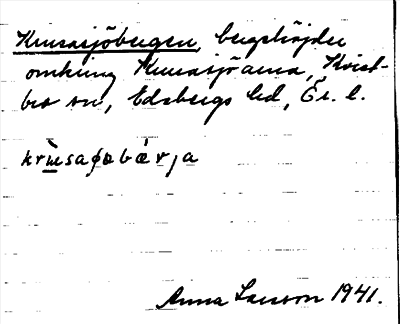 Krusasjöbergen, bergshöjder
omkring Krusasjöarna, Kvist-
bro sn, Edsbergs hd, Ör. l.
Anna Larsson 1941.